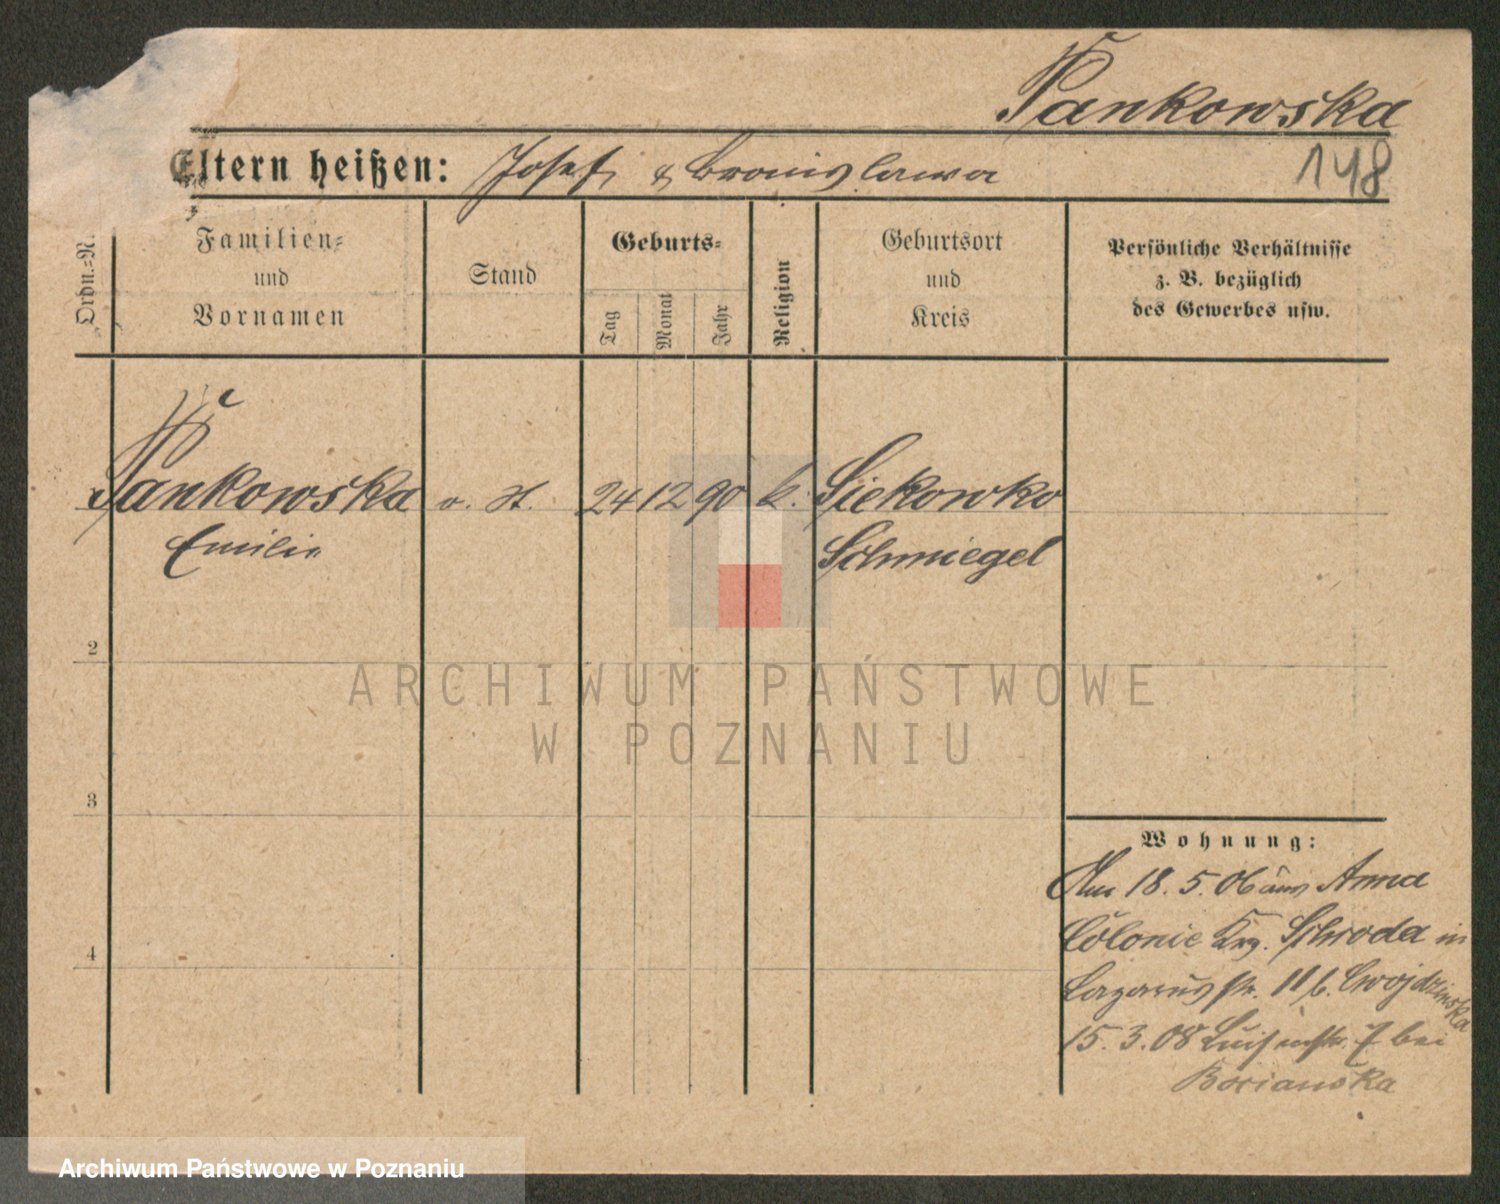 Pankowska
Eltern heißen: Josef & Bronislawa
148
Ordn.-N.
Familien-
und
Vornamen
Stand
Geburts-
Tag
Monat
Jahr
Religion
Geburtsort
und
Kreis
Persönliche Verhältnisse
z. B. bezüglich
des Gewerbes usw.
Pankowska o. St. 24 12 90 k. Siekowko
Emilie Schmiegel
2
3
4
Wohnung:
Am 18.5.06 aus Anna
Colonie Krs. Schroda in
Lazarus str. 11 b. Cwojdzinska
15.3.08 Luisenstr. 7 bei
ARCHIWUM PAŃSTWOWE
W POZNANIU
Archiwum Państwowe w Poznaniu